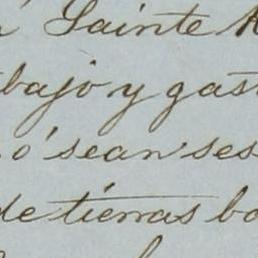 Sainte
bajo y gast
ó sean ses
de tierras ba